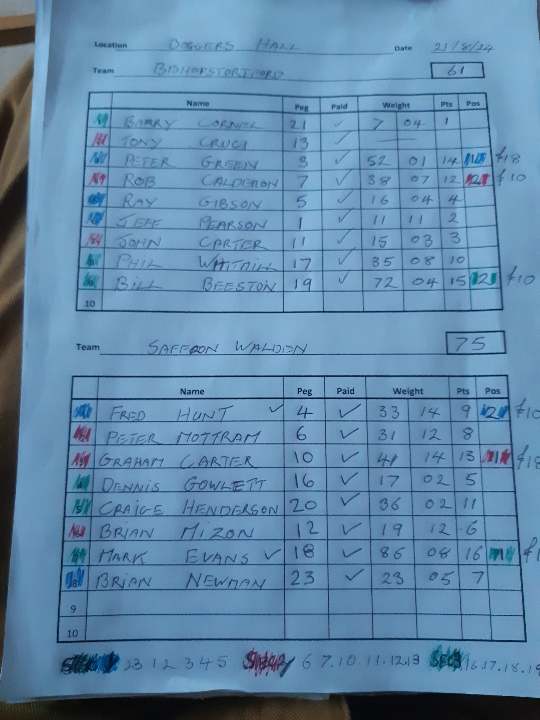 Location DOGGERS HALL Date 21/8/24
Team BISHOPSTORTFORD 61
Name Peg Paid Weight Pts Pos
BARRY CORNEL 21 ✓ 7 04 1
TONY 13 ✓ —
PETER GREEN 3 ✓ 52 01 14 £18
ROB CALDERON 7 ✓ 38 07 12 £10
RAY GIBSON 5 ✓ 16 04 4
JEFF PEARSON 1 ✓ 11 11 2
JOHN CARTER 11 ✓ 15 03 3
PHIL 17 ✓ 35 08 10
BILL BEESTON 19 ✓ 72 04 15 2 £10
10
Team SAFFRON WALDON 75
Name Peg Paid Weight Pts Pos
FRED HUNT ✓ 4 ✓ 33 14 9 2 £10
PETER MOTTRAM 6 ✓ 31 12 8
GRAHAM CARTER 10 ✓ 41 14 13 £18
DENNIS GOWLETT 16 ✓ 17 02 5
CRAIGE HENDERSON 20 ✓ 36 02 11
BRIAN MIZON 12 ✓ 19 12 6
MARK EVANS ✓ 18 ✓ 86 08 16
BRIAN NEWMAN 23 ✓ 23 05 7
9
10
23 1 2 3 4 5 6 7.10.11.12.13 16.17.18.19